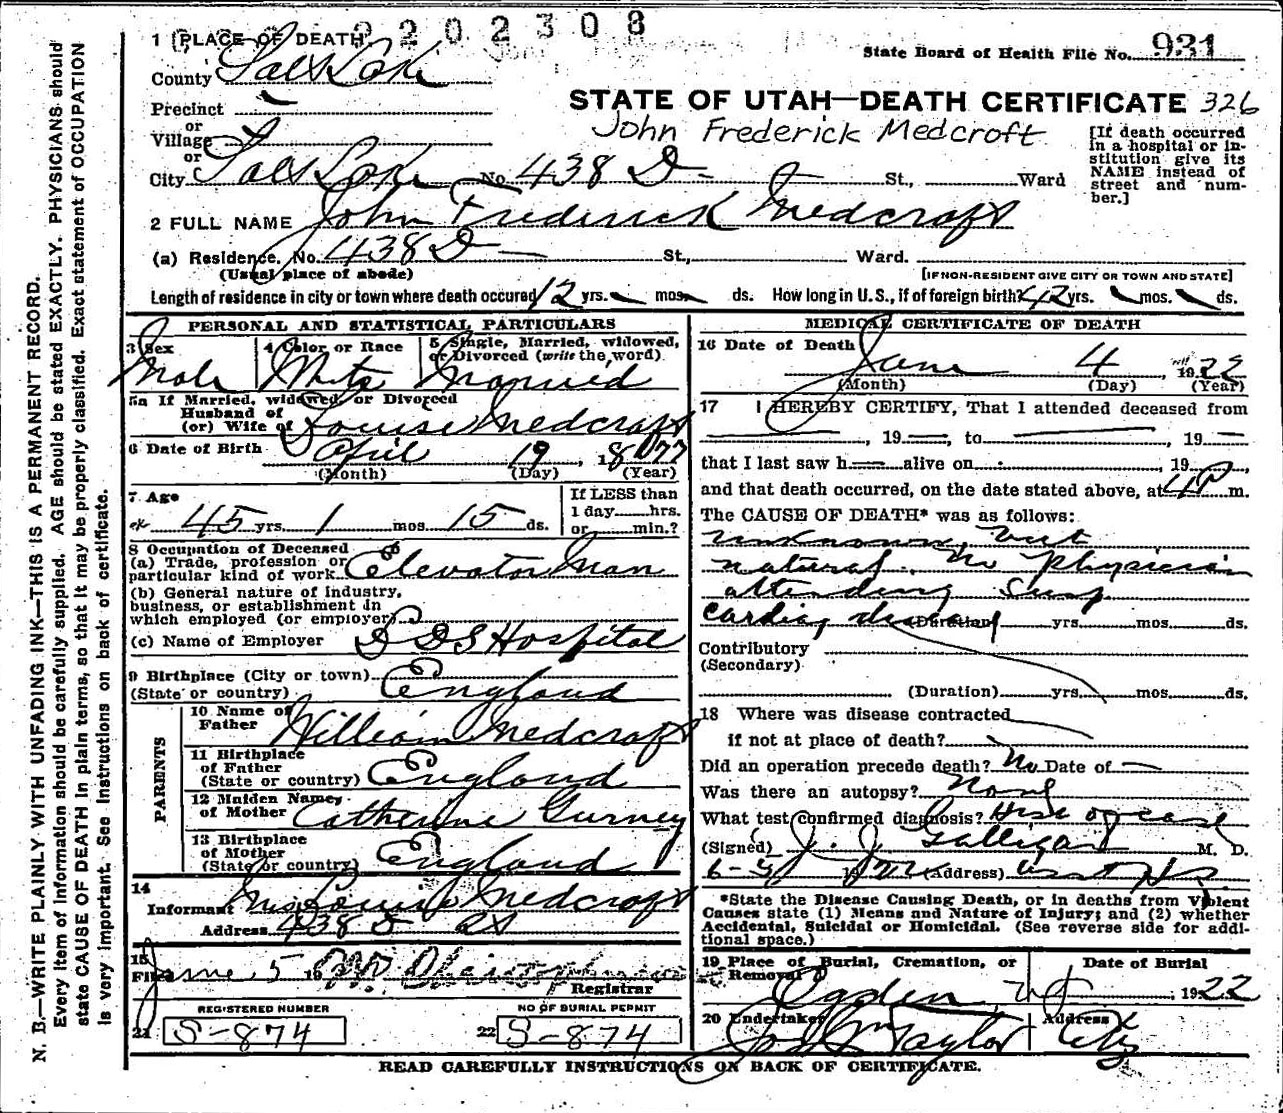 2202308
1 PLACE OF DEATH
State Board of Health File No. 931
County Salt Lake
STATE OF UTAH—DEATH CERTIFICATE 326
Precinct
or
Village
or
John Frederick Medcroft
[If death occurred in a hospital or institution give its NAME instead of street and number.]
City Salt Lake No. 438 D St., Ward
2 FULL NAME John Frederick Medcroft
(a) Residence. No. 438 D — St., Ward.
(Usual place of abode)
[IF NON-RESIDENT GIVE CITY OR TOWN AND STATE]
Length of residence in city or town where death occured 12 yrs. mos. ds. How long in U.S., if of foreign birth? 42 yrs. mos. ds.
PERSONAL AND STATISTICAL PARTICULARS
3 Sex
4 Color or Race
5 Single, Married, widowed, or Divorced (write the word)
Male White Married
5a If Married, widowed, or Divorced
Husband of
(or) Wife of Louise Medcraft
6 Date of Birth April 19, 1877
(Month) (Day) (Year)
7 Age
45 yrs. 1 mos. 15 ds.
If LESS than
1 day hrs.
or min.?
8 Occupation of Deceased
(a) Trade, profession or
particular kind of work Elevator Man
(b) General nature of industry,
business, or establishment in
which employed (or employer)
(c) Name of Employer L D S Hospital
9 Birthplace (City or town)
(State or country) England
PARENTS
10 Name of
Father William Medcraft
11 Birthplace
of Father
(State or country) England
12 Maiden Name
of Mother Catherine Gurney
13 Birthplace
of Mother
(State or country) England
14
Informant Mrs Louise Medcraft
Address 438 D St
15
Filed June 5 19
Registrar
REGISTERED NUMBER
21 S-874
NO OF BURIAL PERMIT
22 S-874
MEDICAL CERTIFICATE OF DEATH
16 Date of Death June 4, 1922
(Month) (Day) (Year)
17 I HEREBY CERTIFY, That I attended deceased from
, 19 , to , 19
that I last saw h alive on , 19 ,
and that death occurred, on the date stated above, at 4 P m.
The CAUSE OF DEATH* was as follows:
unknown, but
natural. No physician
attending Susp
cardiac disease
(Duration) yrs. mos. ds.
Contributory
(Secondary)
(Duration) yrs. mos. ds.
18 Where was disease contracted
if not at place of death?
Did an operation precede death? No Date of —
Was there an autopsy? None
What test confirmed diagnosis? Hist of case
(Signed) J. J. Galligan M. D.
6-5 19 22 (Address)
*State the Disease Causing Death, or in deaths from Violent
Causes state (1) Means and Nature of Injury; and (2) whether
Accidental, Suicidal or Homicidal. (See reverse side for addi-
tional space.)
19 Place of Burial, Cremation, or
Removal
Date of Burial
Ogden Ut , 1922
20 Undertaker
Address
Jos Wm Taylor City
READ CAREFULLY INSTRUCTIONS ON BACK OF CERTIFICATE.
N. B.—WRITE PLAINLY WITH UNFADING INK—THIS IS A PERMANENT RECORD.
Every item of information should be carefully supplied. AGE should be stated EXACTLY. PHYSICIANS should
state CAUSE OF DEATH in plain terms, so that it may be properly classified. Exact statement of OCCUPATION
is very important. See Instructions on back of certificate.